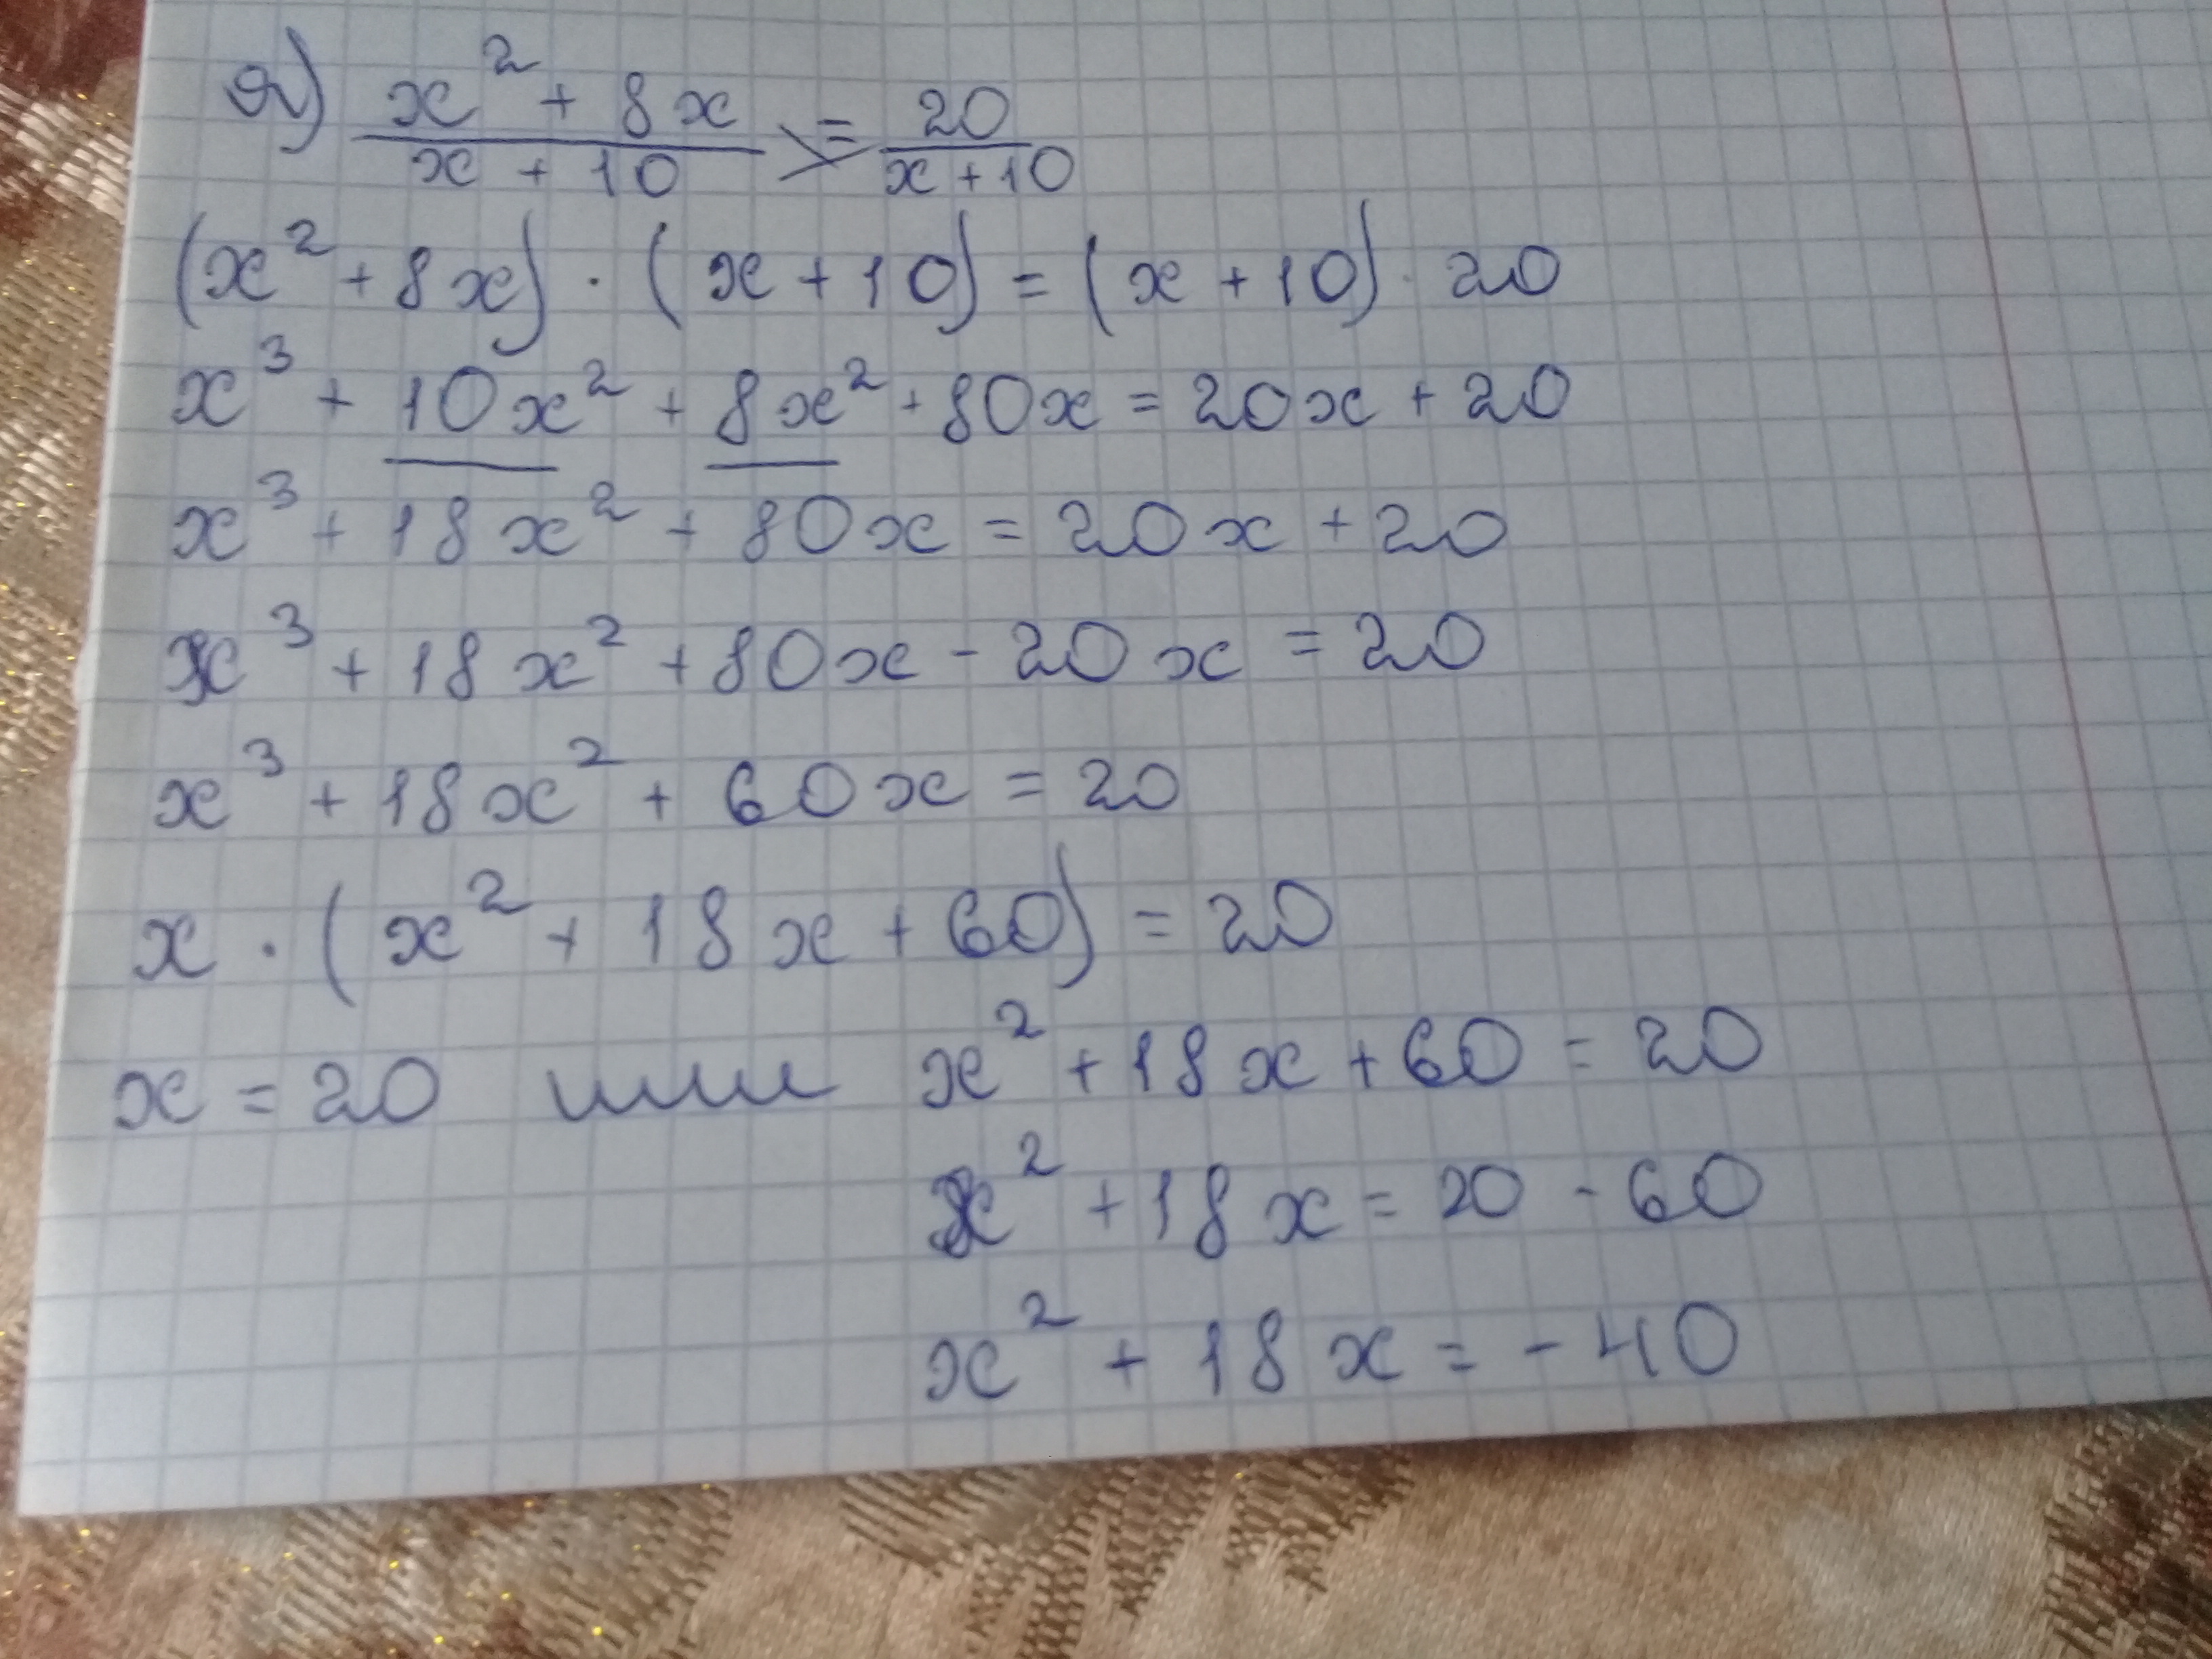 а) (x² + 8x)/(x + 10) = 20/(x + 10)
(x² + 8x) · (x + 10) = (x + 10) · 20
x³ + 10x² + 8x² + 80x = 20x + 20
x³ + 18x² + 80x = 20x + 20
x³ + 18x² + 80x - 20x = 20
x³ + 18x² + 60x = 20
x · (x² + 18x + 60) = 20
x = 20 или x² + 18x + 60 = 20
x² + 18x = 20 - 60
x² + 18x = - 40